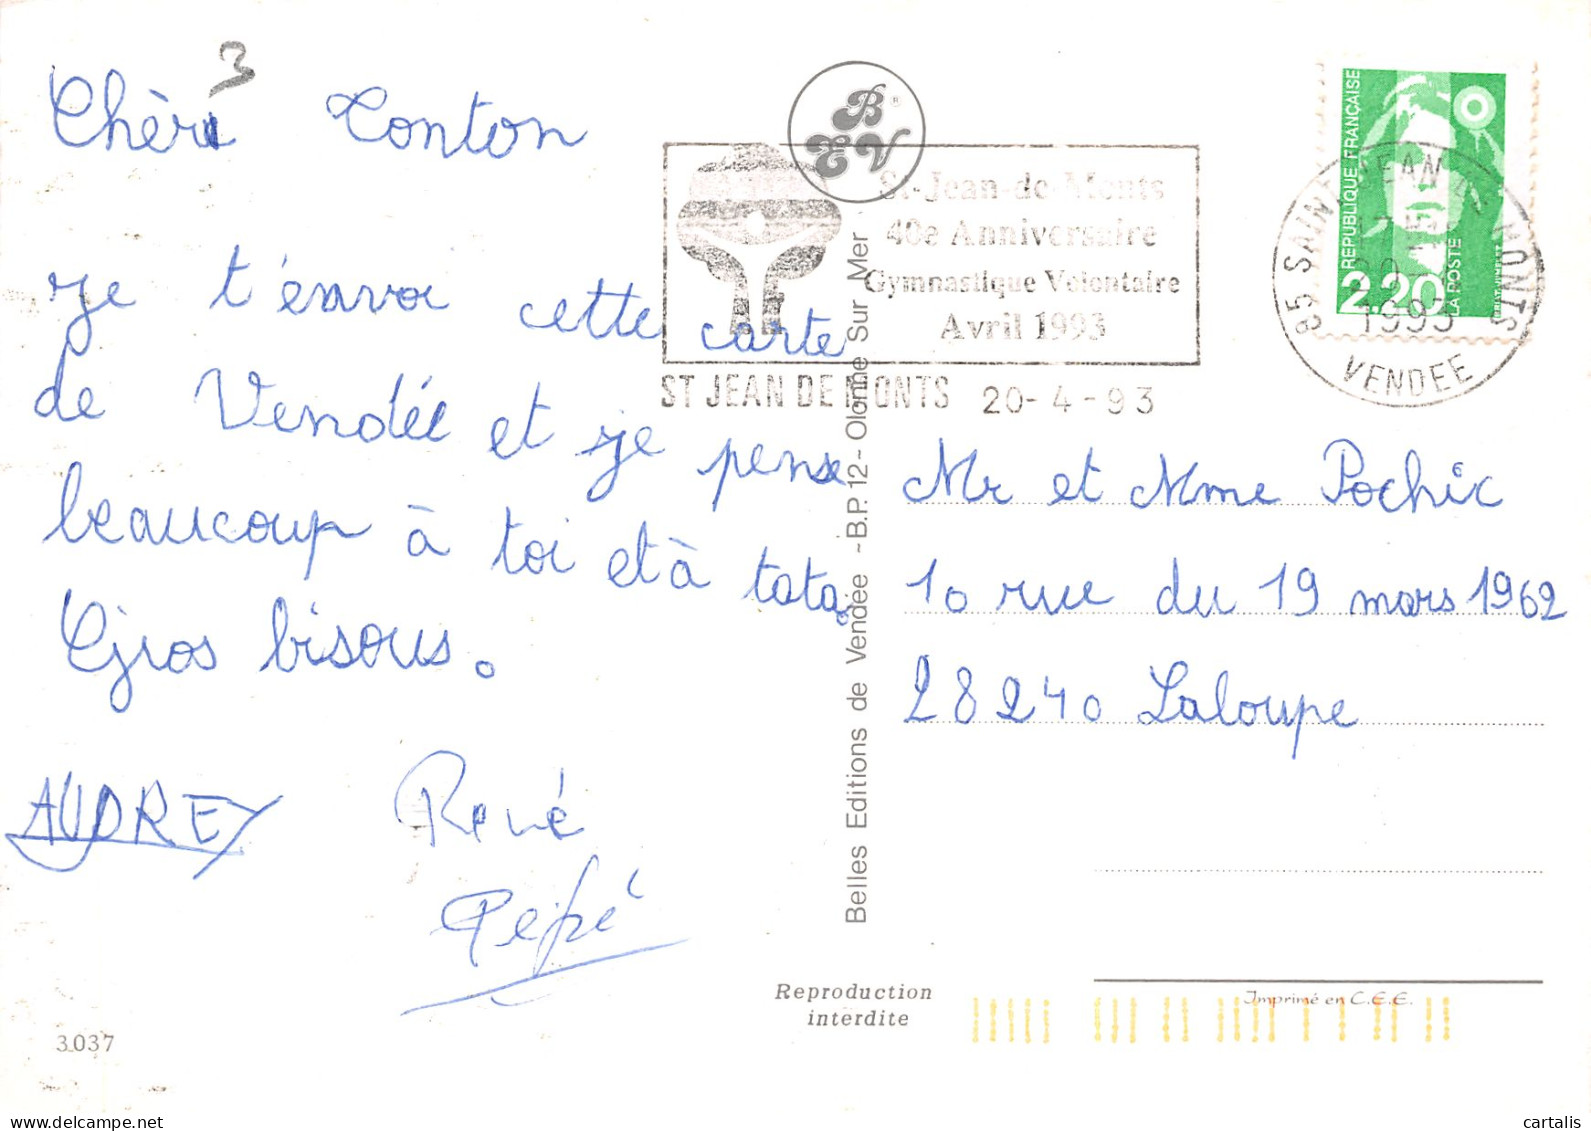 3
Chèri Tonton
je t'envoi cette carte
de Vendée et je pense
beaucoup à toi et à tata.
Gros bisous.
AUDREY René
Pépé
3.037
B E V
St-Jean-de-Monts
40e Anniversaire
Gymnastique Volontaire
Avril 1993
ST JEAN DE MONTS 20-4-93
REPUBLIQUE FRANÇAISE
2.20
LA POSTE
85 SAINT JEAN DE MONTS
1993
VENDEE
Belles Editions de Vendée - B.P. 12 - Olonne Sur Mer
Mr et Mme Pochic
10 rue du 19 mars 1962
28240 Laloupe
Reproduction
interdite
Imprimé en C.E.E.
cartalis
Delcampe.net